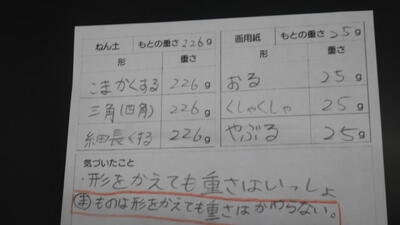 ねん土 もとの重さ226g 画用紙 もとの重さ25g
形 重さ 形 重さ
こまかくする 226g おる 25g
三角(四角) 226g くしゃくしゃ 25g
細長くする 226g やぶる 25g
気づいたこと
・形をかえても重さはいっしょ
ま ものは形をかえても重さはかわらない。